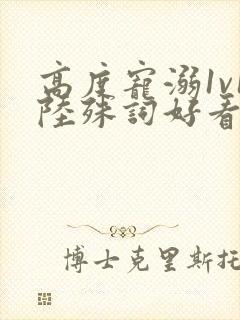 高度寵溺1v1
陸殊詞好看
博士克里斯托